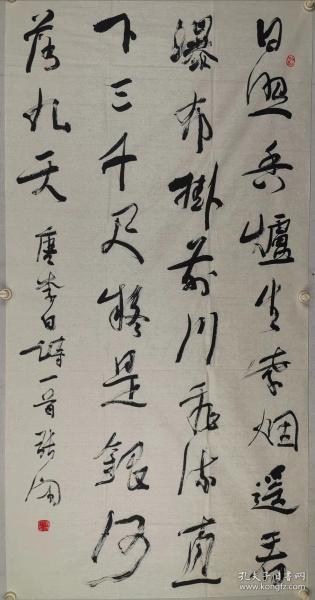 日照香爐生紫烟遥看
瀑布掛前川飛流直
下三千尺疑是銀河
落九天 唐李白詩一首
孔夫子旧书网